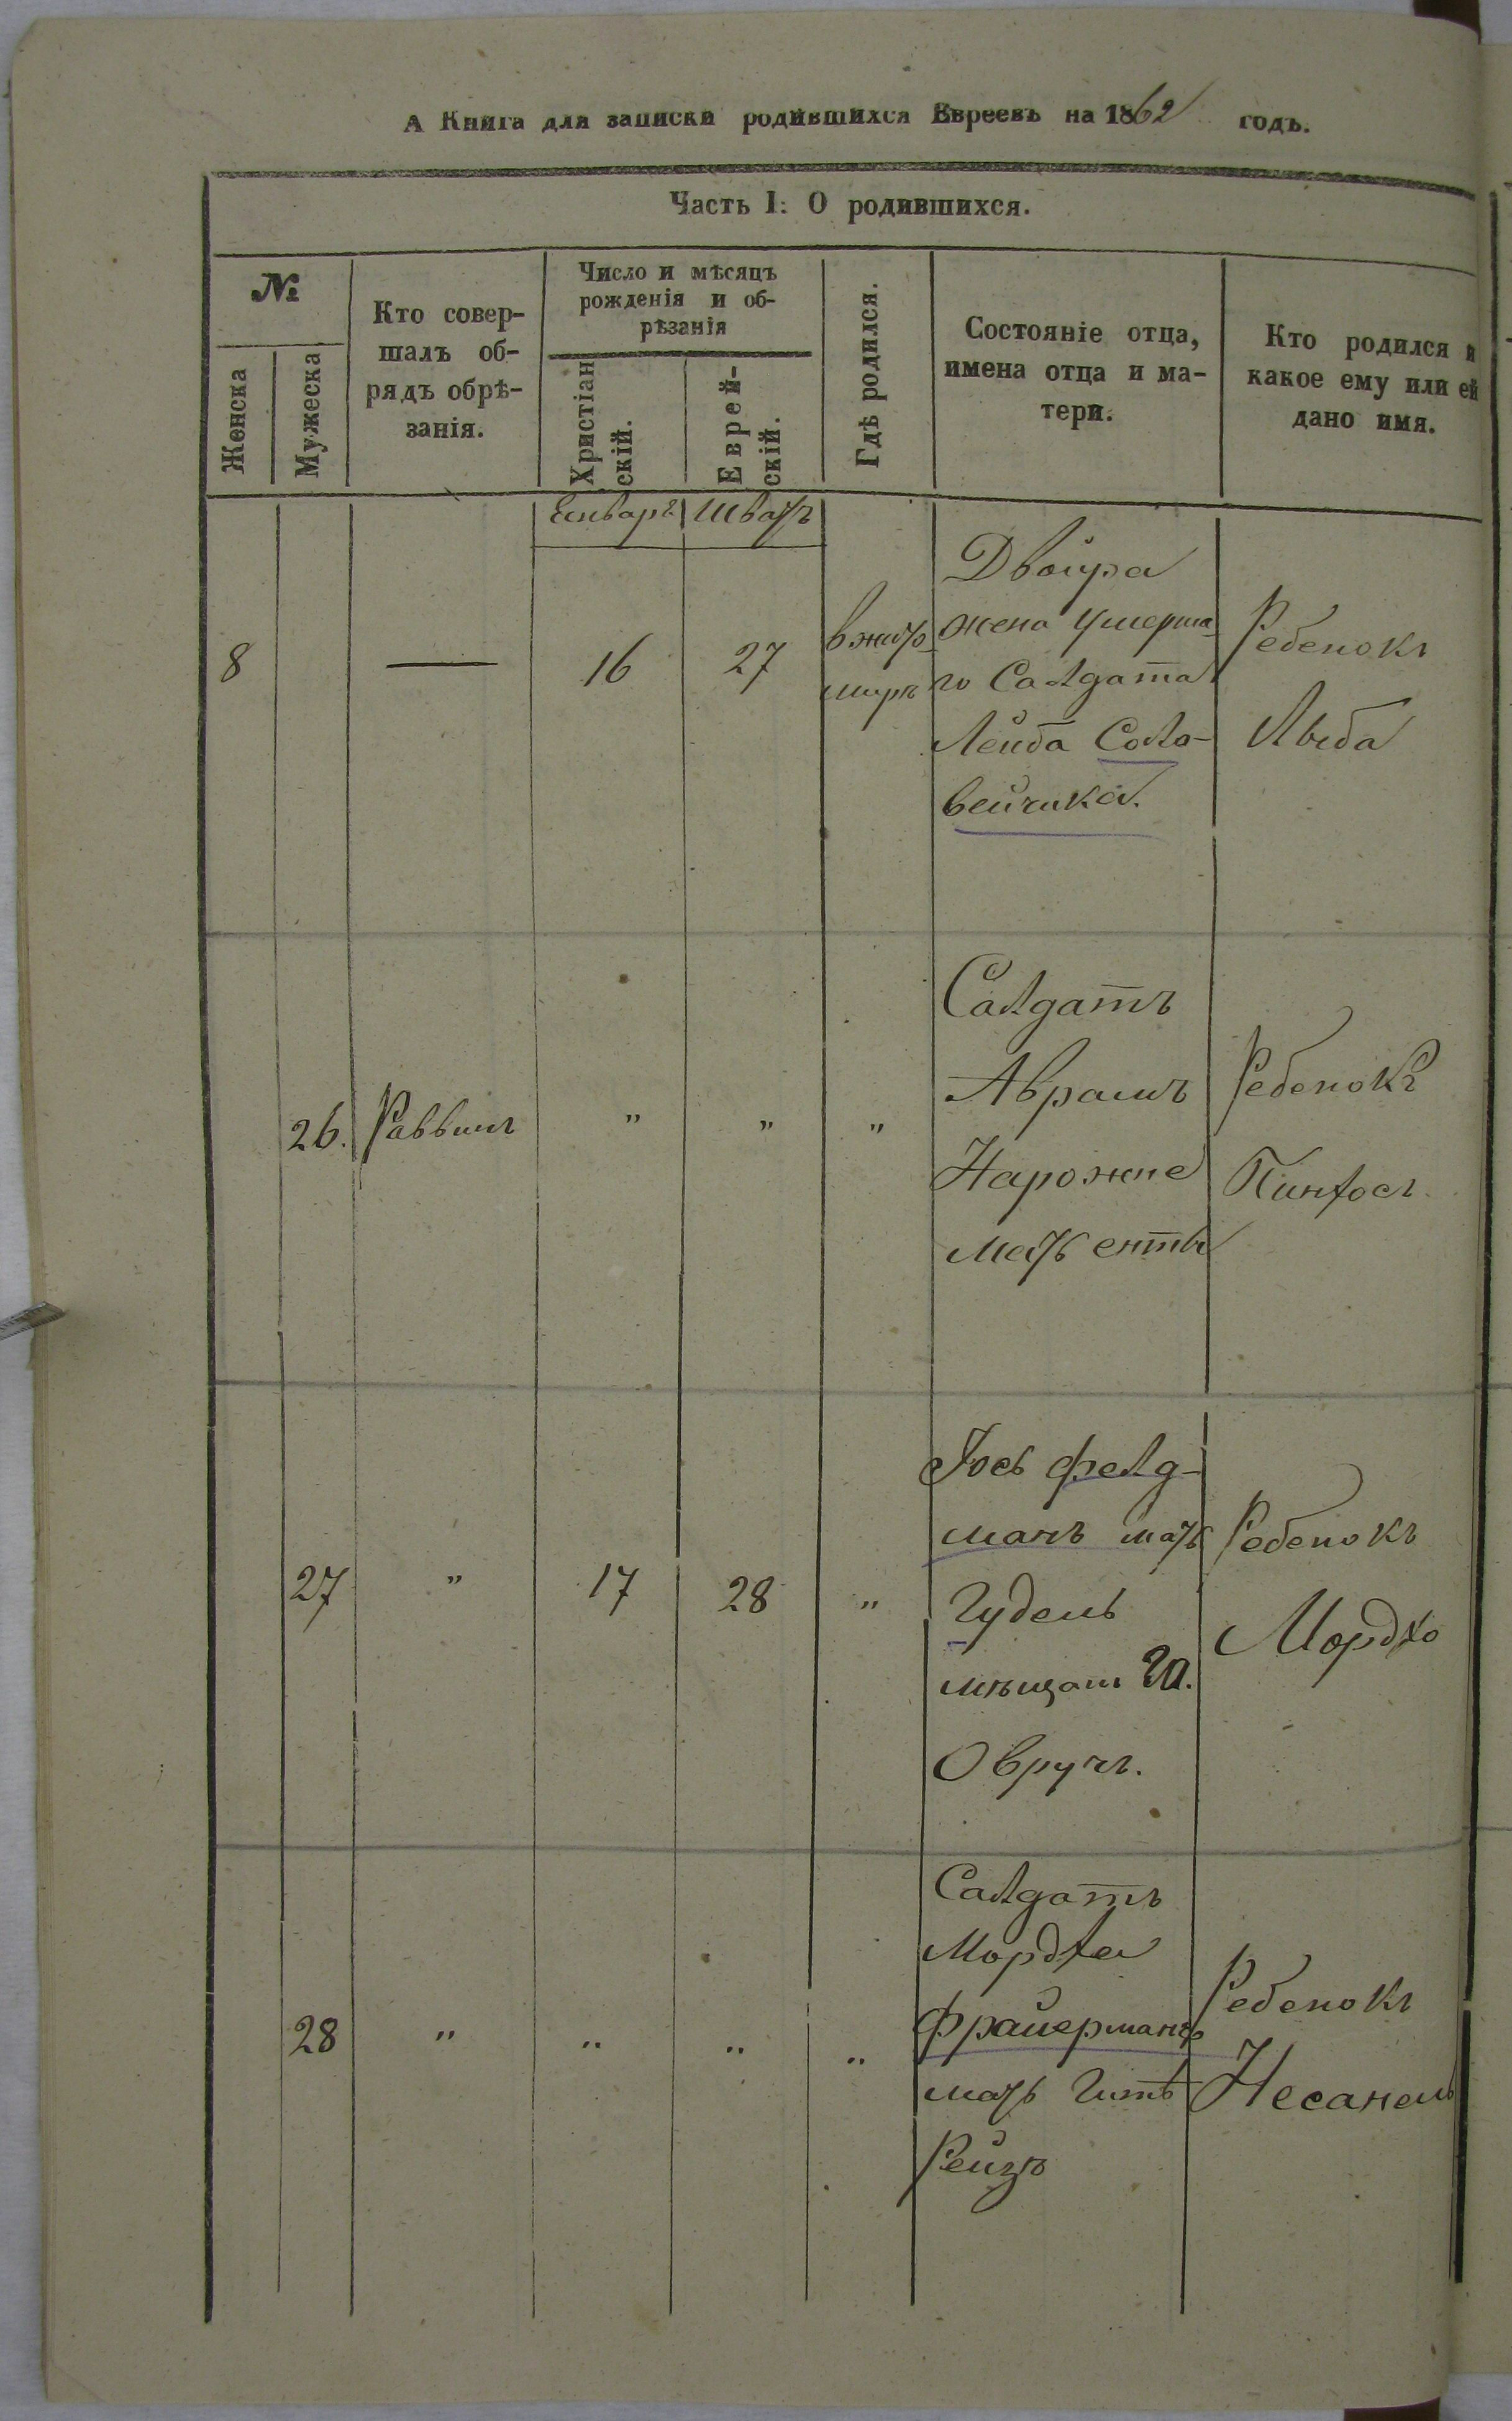 А Книга для записки родившихся Евреевъ на 1862 годъ.
Часть I: О родившихся.
№
Женска
Мужеска
Кто совер-
шалъ об-
рядъ обрѣ-
занія.
Число и мѣсяцъ
рожденія и об-
рѣзанія
Христіан
скій.
Еврей-
скій.
Гдѣ родился.
Состояніе отца,
имена отца и ма-
тери.
Кто родился и
какое ему или ей
дано имя.
Енварь
Шватъ
8
—
16
27
в жито
мирѣ
Двойра
жена умерша
го Салдата
Лейба Соло-
вейчика.
Ребенокъ
Лыба
26.
Раввинъ
"
"
"
Салдатъ
Аврамъ
Нарожне
мать енты
Ребенокъ
Пинхосъ
27
"
17
28
"
Іось фелд-
манъ мать
Гудель
мѣщан
Овручъ.
Ребенокъ
Мордхо
28
"
"
"
"
Салдатъ
Мордха
Фраиерманъ
мать Гитѣ
Рейзѣ
Ребенокъ
Несанель